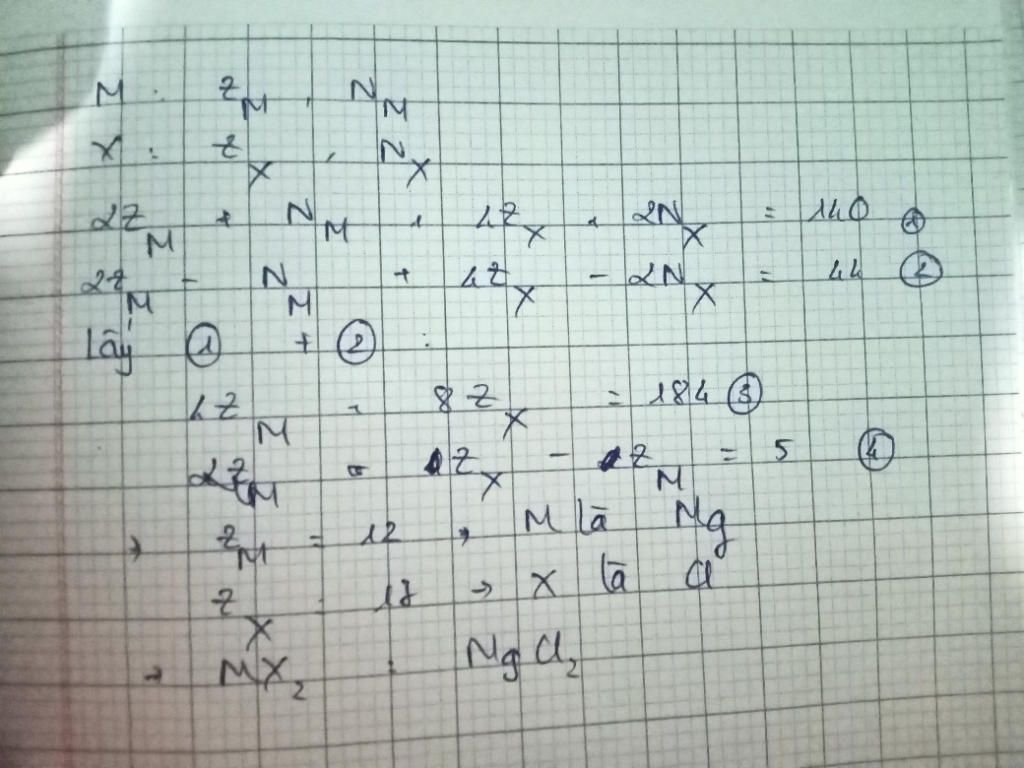 M : Z_M , N_M
X : Z_X , N_X
2Z_M + N_M + 4Z_X + 2N_X = 140 ①
2Z_M - N_M + 4Z_X - 2N_X = 44 ②
Lấy ① + ② :
4Z_M + 8Z_X = 184 ③
Z_X - Z_M = 5 ④
→ Z_M = 12 → M là Mg
Z_X = 17 → X là Cl
→ MX₂ : MgCl₂